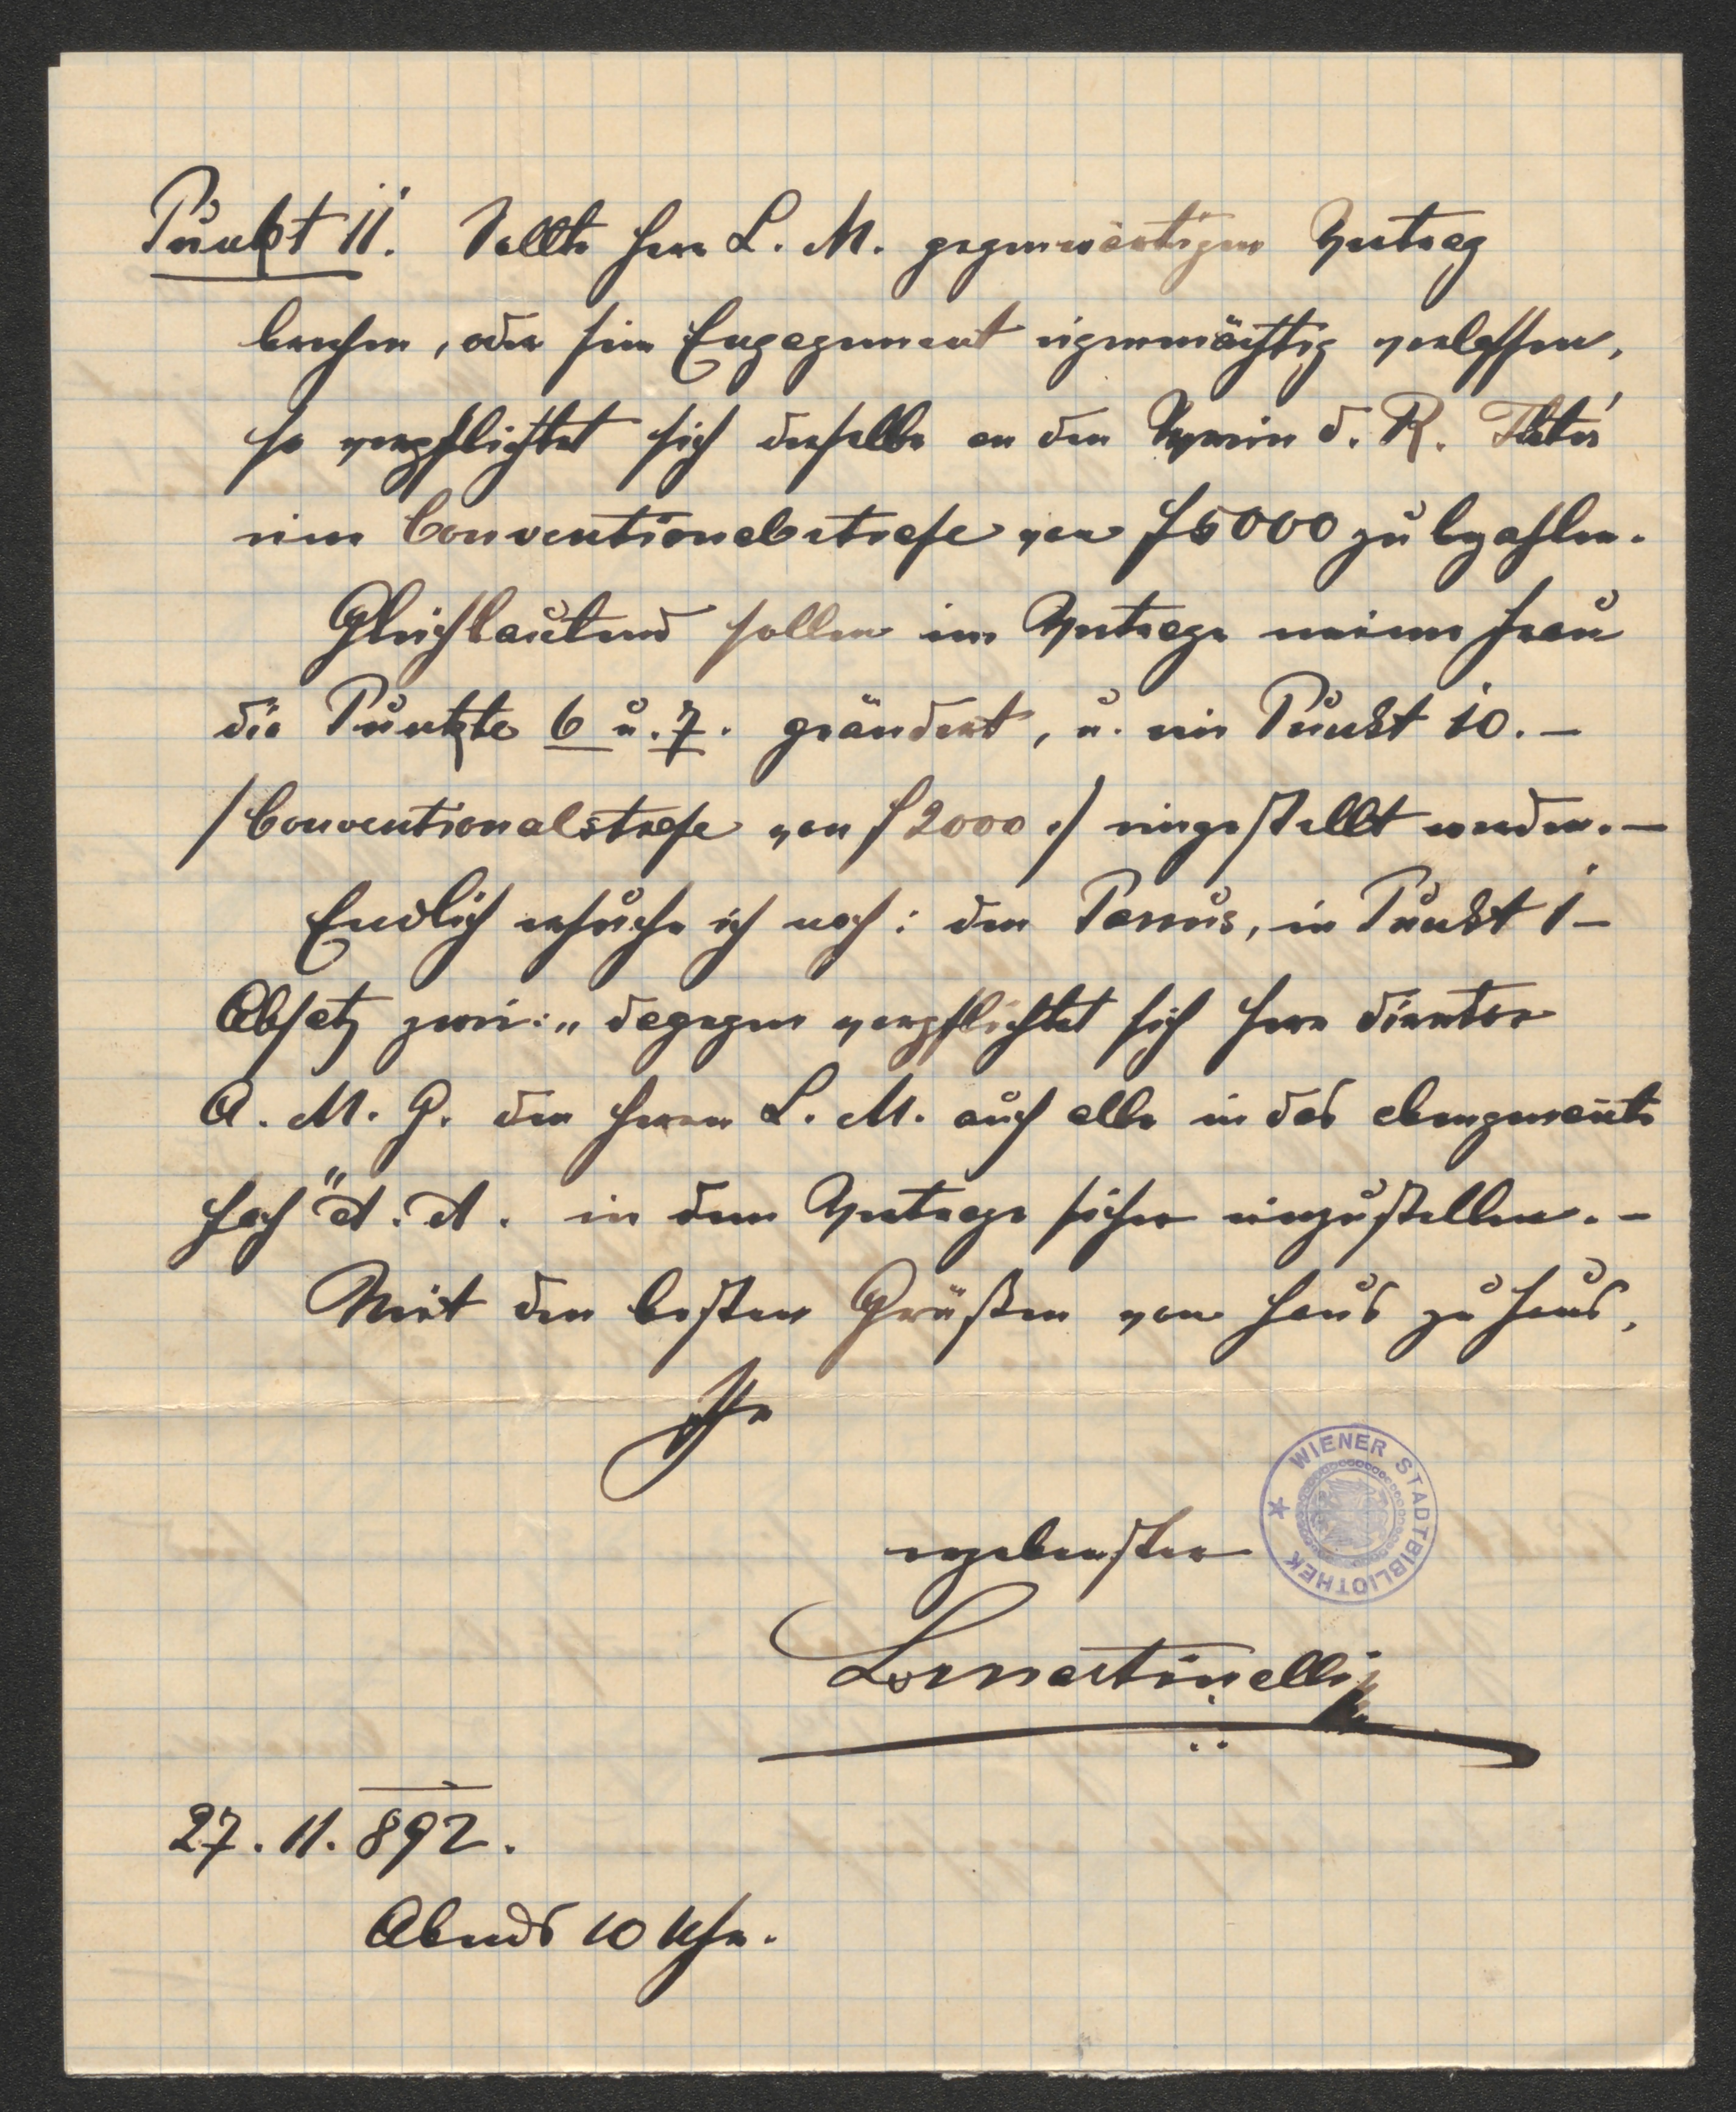 Punkt 11. Sollte Herr L. M. gegenwärtigen Vertrag
brechen, oder sein Engagement eigenmächtig verlassen,
so verpflichtet sich derselbe an den Verein d. R. Thters
eine Conventionalstrafe von f 5000 zu bezahlen.
Gleichlautend sollen im Vertrage meiner Frau
die Punkte 6 u. 7. geändert, u. ein Punkt 10. –
/Conventionalstrafe von f 2000./ eingestellt werden. –
Endlich ersuche ich noch: den Passus, in Punkt 1 –
Absatz zwei: „dagegen verpflichtet sich Herr Director
A. M. G. den Herrn L. M. auch alle in das obengenannte
Fach" et. et. in dem Vertrage sicher einzustellen. –
Mit den besten Grüßen von Haus zu Haus,
Ihr
ergebenster
LMartinelli
27. 11. 892.
Abends 10 Uhr.
WIENER STADTBIBLIOTHEK